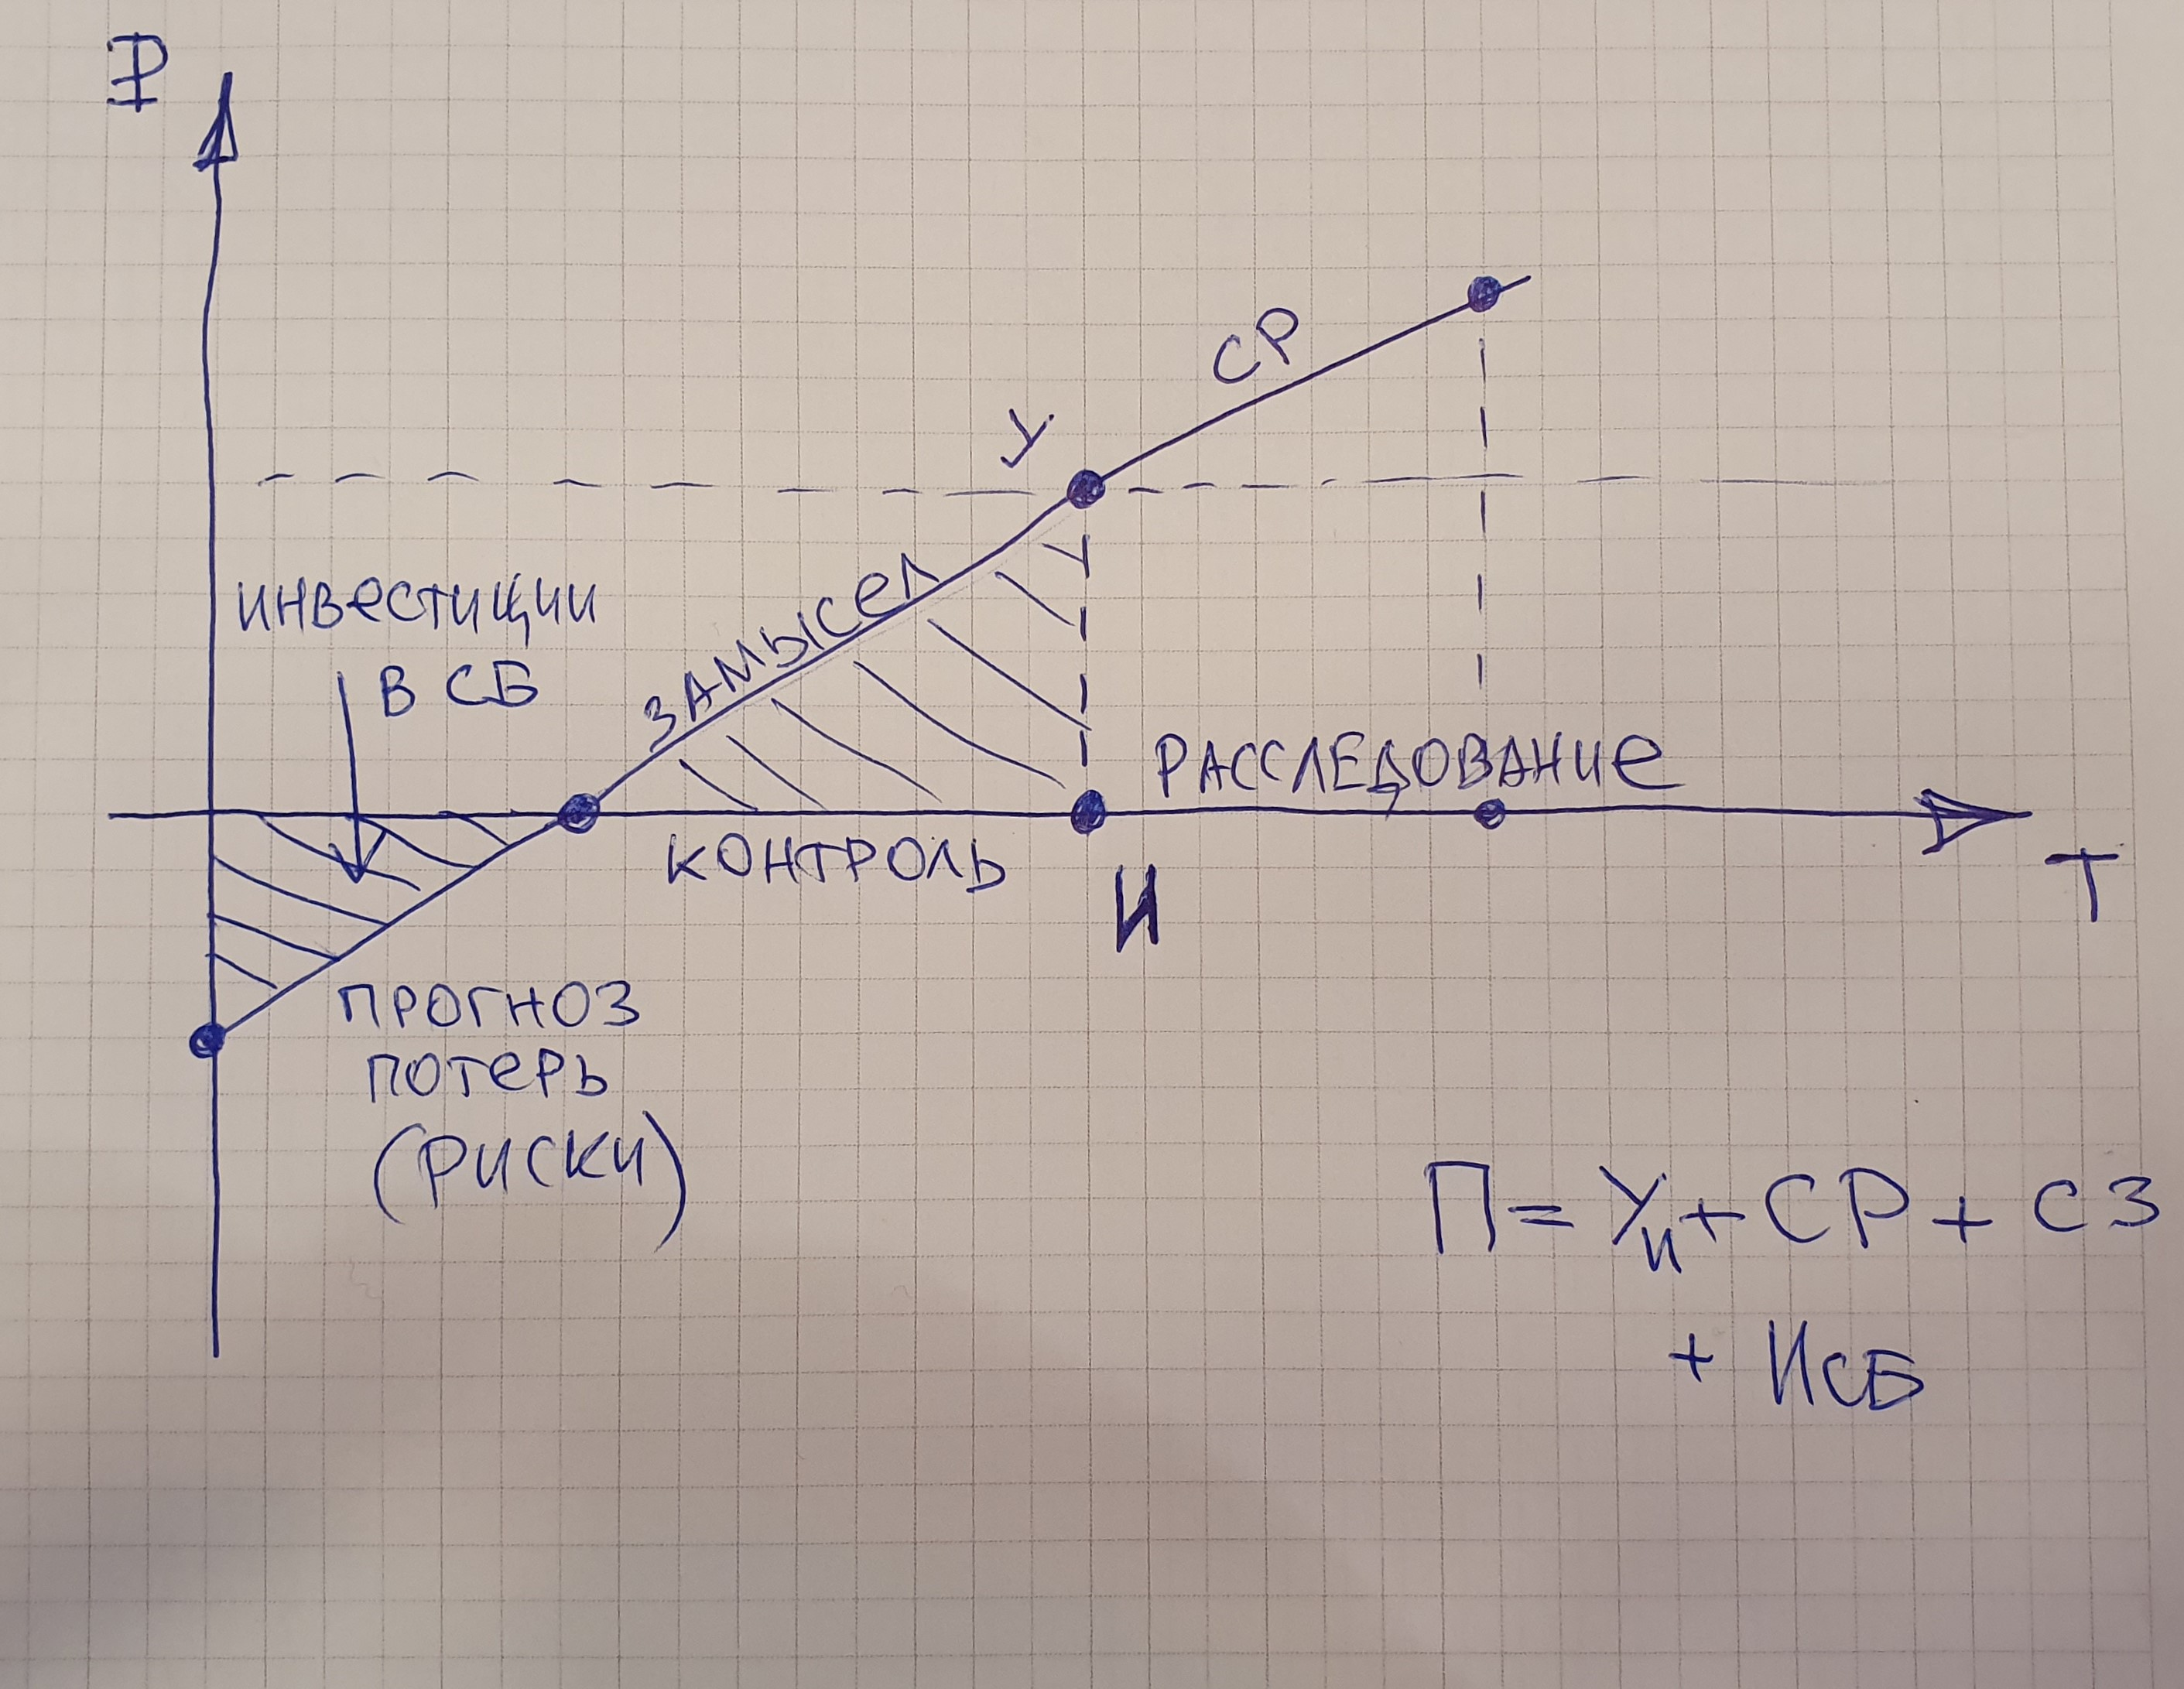 ₽
СР
У
ИНВЕСТИЦИИ
В СБ
ЗАМЫСЕЛ
РАССЛЕДОВАНИЕ
КОНТРОЛЬ
И
Т
ПРОГНОЗ
ПОТЕРЬ
(РИСКИ)
П = Уи + СР + СЗ
+ ИСБ